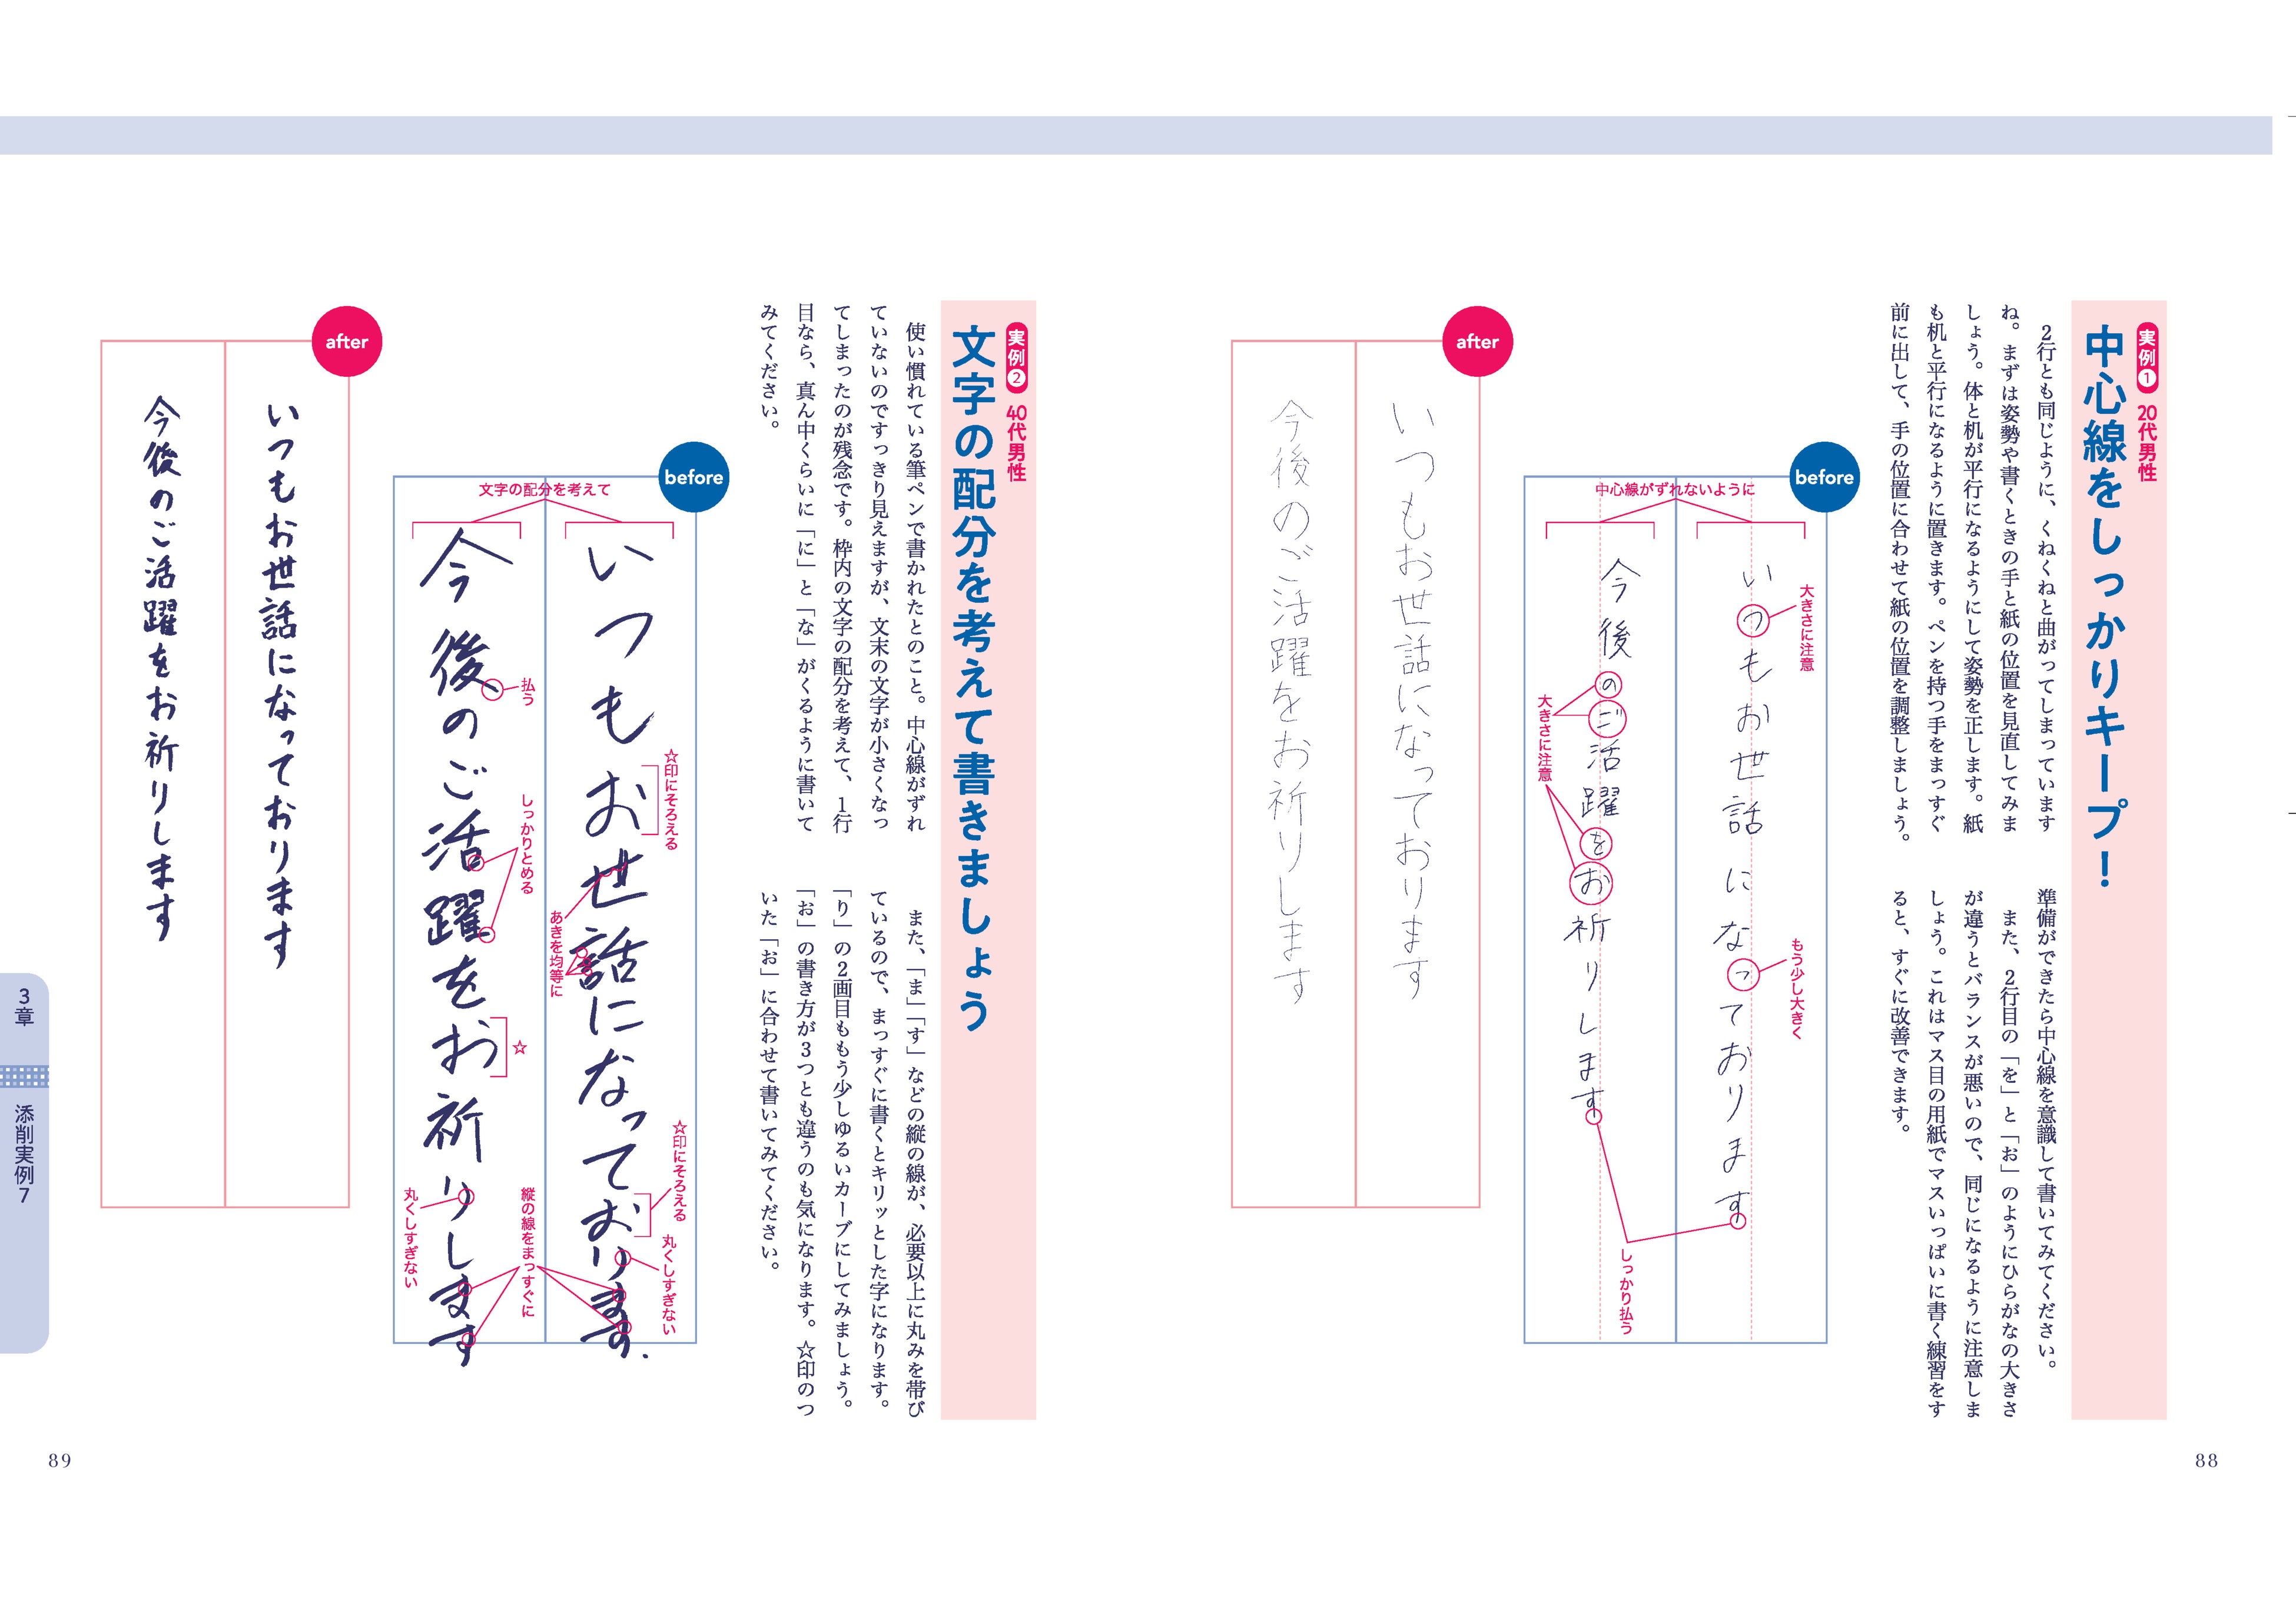 実例① 20代男性
中心線をしっかりキープ！
２行とも同じように、くねくねと曲がってしまっています
ね。まずは姿勢や書くときの手と紙の位置を見直してみま
しょう。体と机が平行になるようにして姿勢を正します。紙
も机と平行になるように置きます。ペンを持つ手をまっすぐ
前に出して、手の位置に合わせて紙の位置を調整しましょう。
準備ができたら中心線を意識して書いてみてください。
また、２行目の「を」と「お」のようにひらがなの大きさ
が違うとバランスが悪いので、同じになるように注意しま
しょう。これはマス目の用紙でマスいっぱいに書く練習をす
ると、すぐに改善できます。
before
中心線がずれないように
大きさに注意
もう少し大きく
いつもお世話になっております
今後のご活躍をお祈りします
大きさに注意
しっかり払う
after
いつもお世話になっております
今後のご活躍をお祈りします
88
実例② 40代男性
文字の配分を考えて書きましょう
使い慣れている筆ペンで書かれたとのこと。中心線がずれ
ていないのですっきり見えますが、文末の文字が小さくなっ
てしまったのが残念です。枠内の文字の配分を考えて、１行
目なら、真ん中くらいに「に」と「な」がくるように書いて
みてください。
また、「ま」「す」などの縦の線が、必要以上に丸みを帯び
ているので、まっすぐに書くとキリッとした字になります。
「り」の２画目ももう少しゆるいカーブにしてみましょう。
「お」の書き方が３つとも違うのも気になります。☆印のつ
いた「お」に合わせて書いてみてください。
before
文字の配分を考えて
☆印にそろえる
☆印にそろえる
丸くしすぎない
いつもお世話になっております.
あきを均等に
払う
しっかりとめる
☆
縦の線をまっすぐに
今後のご活躍をお祈りします
丸くしすぎない
after
いつもお世話になっております
今後のご活躍をお祈りします
3章
添削実例7
89